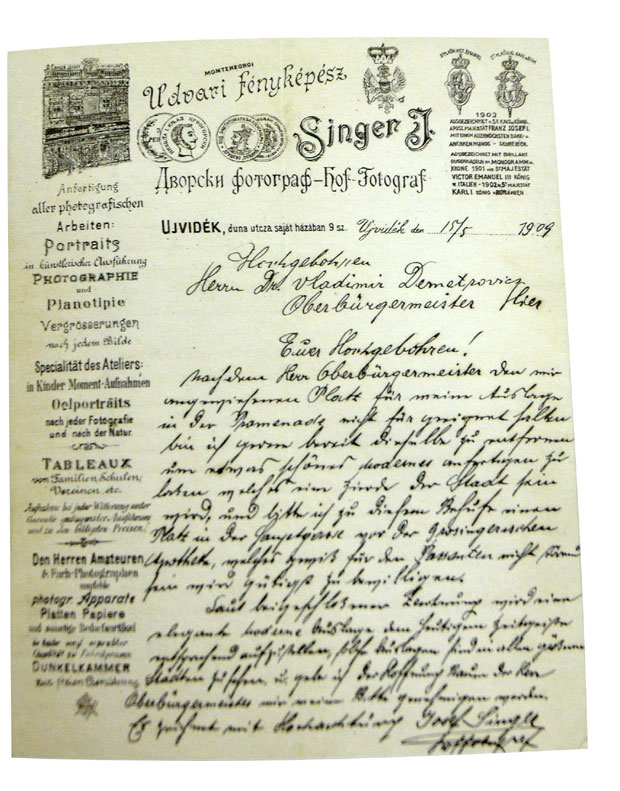 MONTENEGROI
Udvari fényképész
Singer J.
Дворски фотограф-Hof-Fotograf
1903
AUSGEZEICHNET v. Sr KAIS. u. KÖNIGL.
APOSL. MAJESTÄT FRANZ JOSEF I.
MIT EINEM ALLERHÖCHSTEN DANK- u.
ANERKENNUNGS-SCHREIBEN.
AUSGEZEICHNET MIT BRILLANT.
BUSENNADELN M. MONOGRAMM u.
KRONE 1901 von Sr MAJESTÄT
VICTOR EMANUEL III KÖNIG
v. ITALIEN - 1902 v. Sr MAJESTÄT
KARL I KÖNIG v. RUMÄNIEN.
Anfertigung
aller photografischen
Arbeiten:
Portraits
in künstlerischer Ausführung
PHOTOGRAPHIE
und
Planotipie
Vergrösserungen
nach jedem Bilde
Specialität des Ateliers:
in Kinder Moment-Aufnahmen
Oelporträits
nach jeder Fotografie
und nach der Natur.
TABLEAUX
von Familien, Schulen,
Vereinen etc.
Aufnahme bei jeder Witterung unter
Garantie gediegenster Ausführung
und zu den billigsten Preisen.
Den Herren Amateuren
& Fach-Photographen
empfehle
photogr. Apparate
Platten Papiere
und sonstige Bedarfsartikel
DUNKELKAMMER
UJVIDÉK, duna utcza saját házában 9 sz. Ujvidék den 15/5 1909
Hochgebohren
Herrn Dr. Vladimir Demetrovicz
Oberbürgermeister Hier
Euer Hochgebohren!
Nachdem Herr Oberbürgermeister den mir
angewiesenen Platz für meine Auslage
in der Promenade nicht für geeignet halten
bin ich gerne bereit dieselbe zu entfernen
um etwas schönes modernes anfertigen zu
lassen welches eine Zierde der Stadt sein
wird, und bitte ich zu diesem Behufe einen
Platz in der Hauptgasse vor der Grosingerischen
Apotheke, welches gewiß für den Passanten nicht störend
sein wird gütigst zu bewilligen.
Laut beigeschlossener Zeichnung wird eine
elegante moderne Auslage dem heutigen Zeitgeiste
entsprechend aufzustellen, solche Auslagen sind in allen grösseren
Städten zu sehen, u. gebe ich der Hoffnung Raum der Herr
Oberbürgermeister mir meine Bitte genehmigen werden.
Es zeichnet mit Hochachtung Josef Singer
Hoffotograf